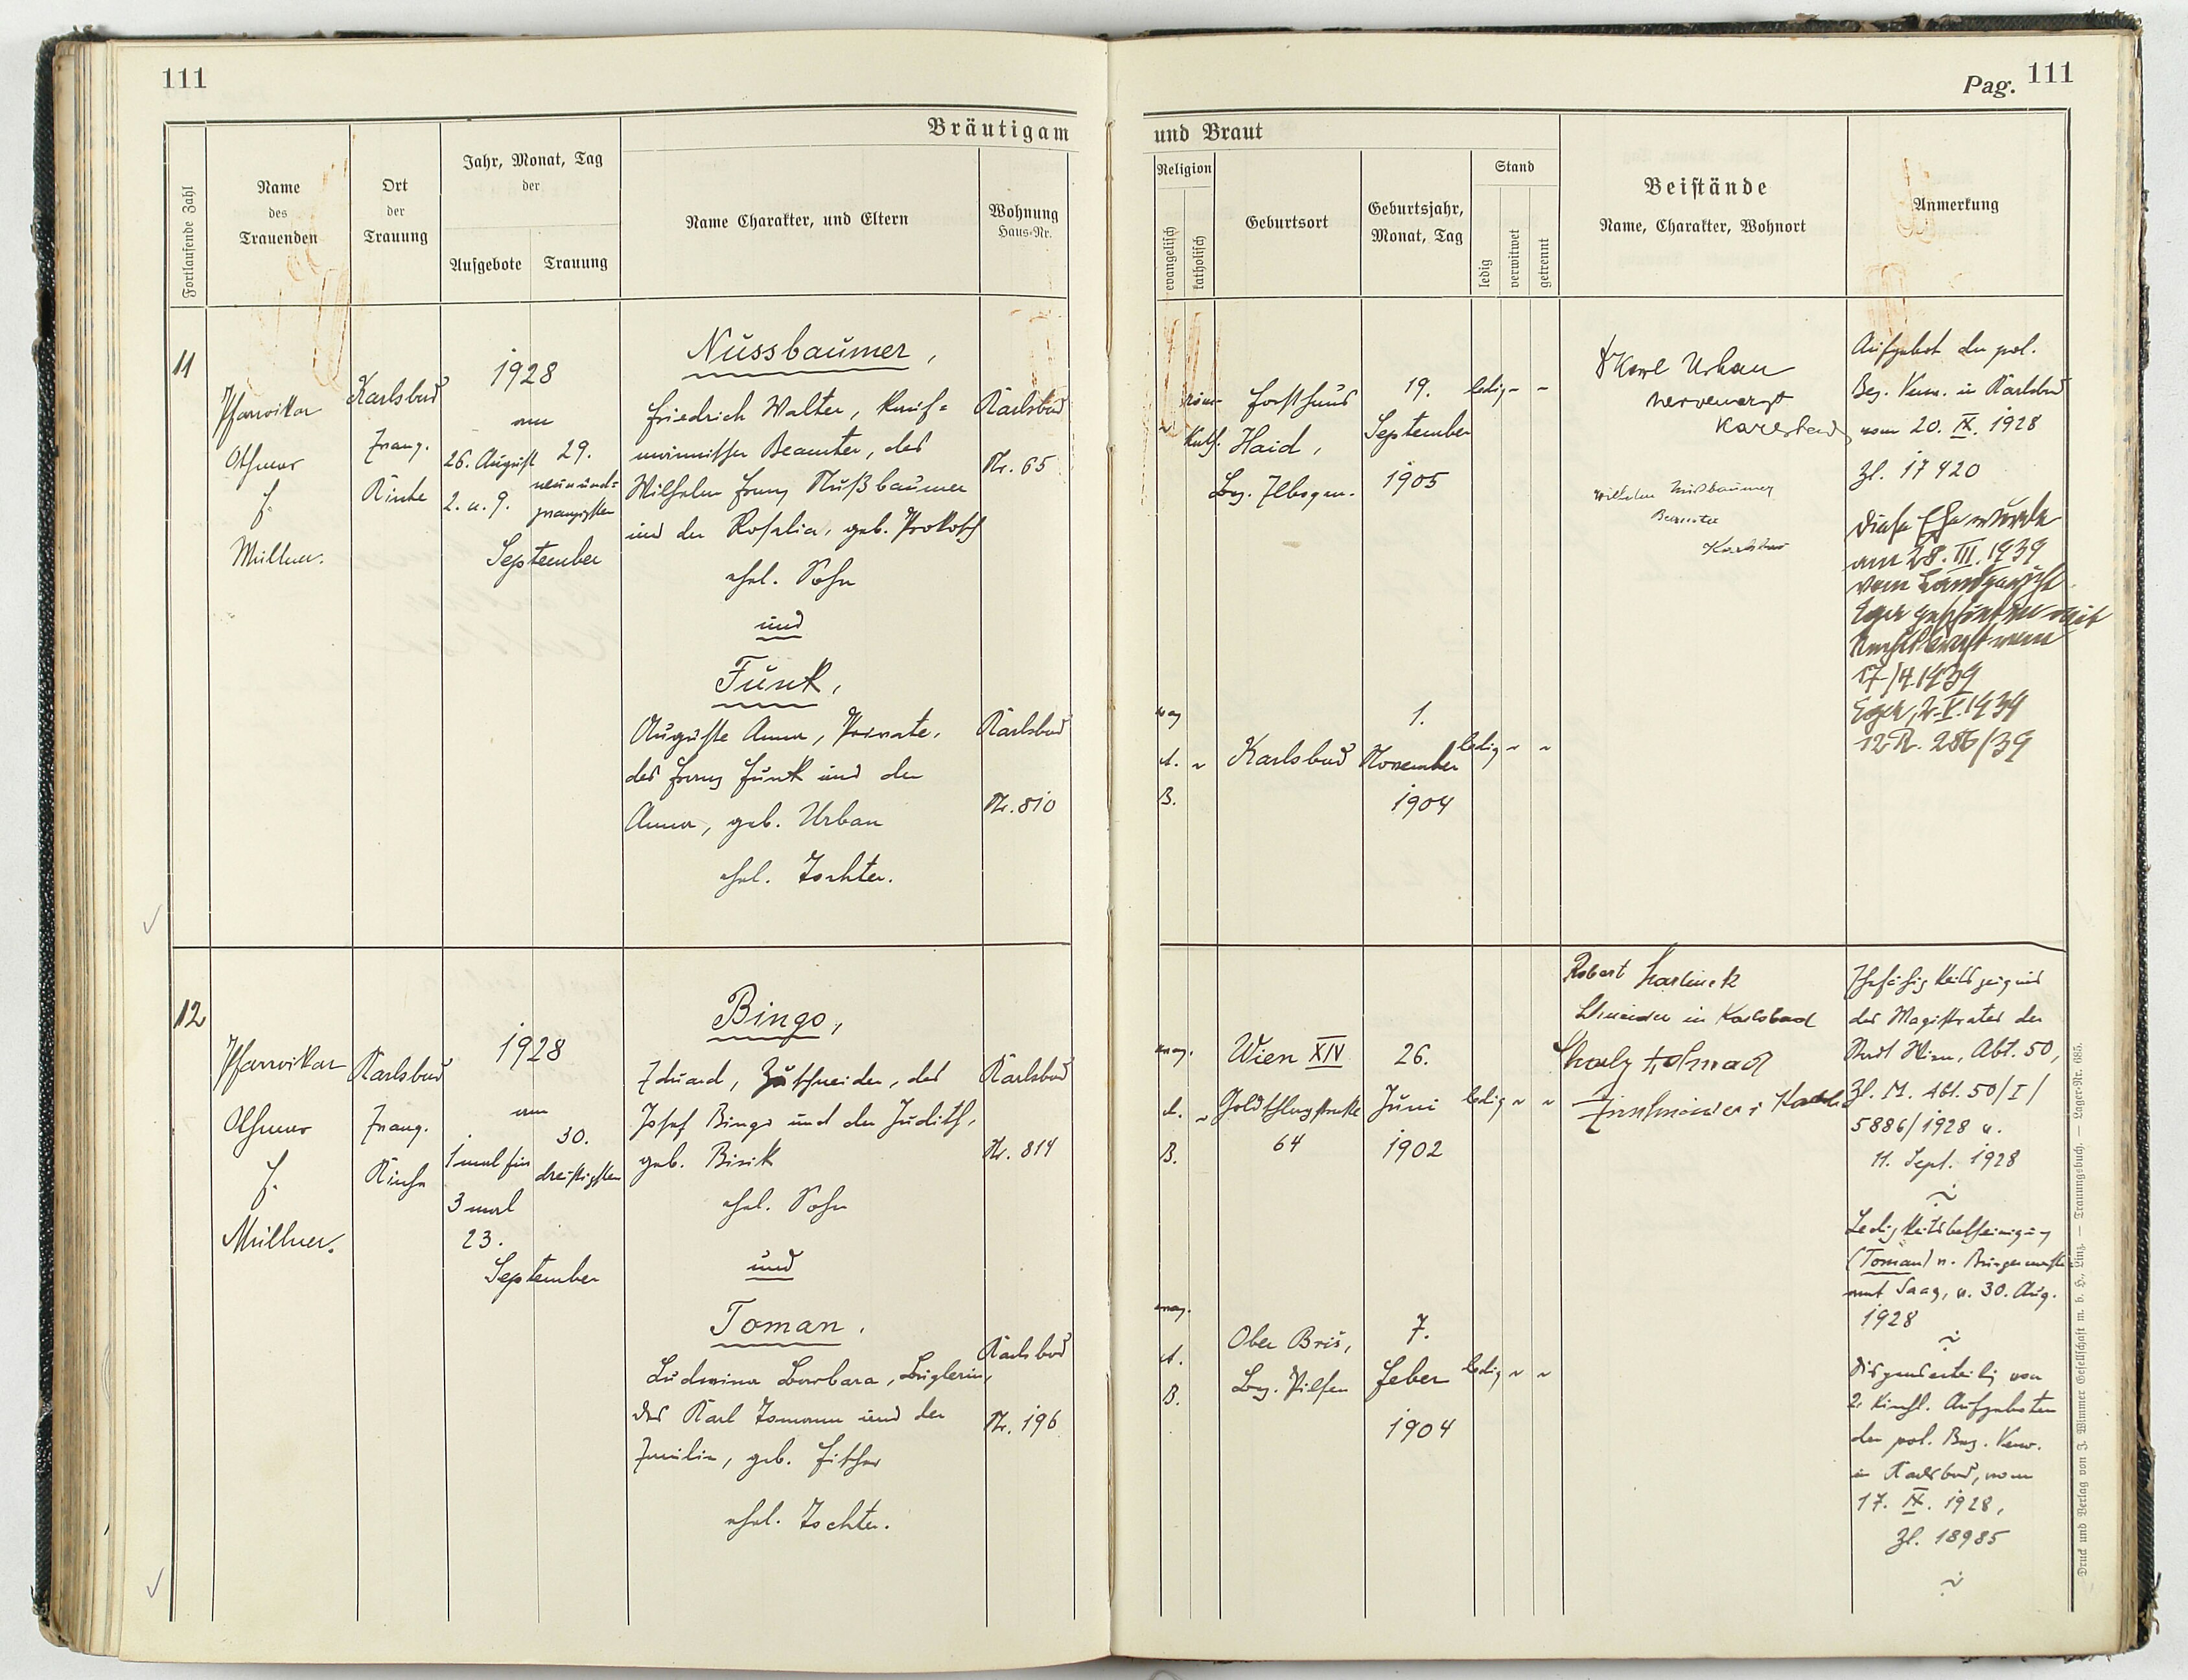 111
Pag. 111
Bräutigam und Braut
Fortlaufende Zahl
Name
des
Trauenden
Ort
der
Trauung
Jahr, Monat, Tag
der
Aufgebote
Trauung
Name Charakter, und Eltern
Wohnung
Haus-Nr.
Religion
evangelisch
katholisch
Geburtsort
Geburtsjahr,
Monat, Tag
Stand
ledig
verwitwet
getrennt
Beistände
Name, Charakter, Wohnort
Anmerkung
11
Pfarrvikar
Othmar
F.
Müllner.
Karlsbad
Evang.
Kirche
1928
am
26. August
2. u. 9.
29.
neunund-
zwanzigsten
September
Nussbaumer,
Friedrich Walter, kauf-
männischer Beamter, des
Wilhelm Franz Nußbaumer
und der Rosalia, geb. Prokosch
ehel. Sohn
und
Funk,
Auguste Anna, Private,
des Franz Funk und der
Anna, geb. Urban
ehel. Tochter.
Karlsbad
Nr. 65
Karlsbad
Nr. 810
röm.
kath.
Forsthaus
Haid,
Bez. Elbogen.
19.
September
1905
ledig - -
evag
A.
B.
Karlsbad
1.
November
1904
ledig - -
Karl Urban
Nervenarzt
Karlsbad
Wilhelm Nußbaumer
Beamter
Karlsbad
Aufgebot der pol.
Bez. Verw. in Karlsbad
vom 20. IX. 1928
Zl. 17420
Diese Ehe wurde
am 28. III. 1939
vom Landgericht
Eger geschieden mit
Rechtskraft vom
17/4 1939
Eger, 2. V. 1939
12 R. 286/39
12
Pfarrvikar
Othmar
F.
Müllner.
Karlsbad
Evang.
Kirche
1928
am
1 mal für
3 mal
23.
30.
dreißigsten
September
Bingo,
Eduard, Zuschneider, des
Josef Bingo und der Judith,
geb. Bisik
ehel. Sohn
und
Toman,
Ludmina Barbara, Büglerin,
des Karl Tomann und der
Emilie, geb. Fischer
ehel. Tochter.
Karlsbad
Nr. 814
Karlsbad
Nr. 196
evag.
A.
B.
Wien XIV
Goldschlagstraße
64
26.
Juni
1902
ledig - -
evag.
A.
B.
Ober Bris,
Bez. Pilsen
7.
Feber
1904
ledig - -
Robert
Schneider in Karlsbad
Zuschneider i
Ehefähigkeitszeugnis
des Magistrates der
Stadt Wien, Abt. 50,
Zl. M. Abt. 50/I/
5886/1928 v.
11. Sept. 1928
Ledigkeitsbescheinigung
(Toman) v. Bürgermeister
amt Saaz, v. 30. Aug.
1928
Dispenserteilg von
2. kirchl. Aufgeboten
der pol. Bez. Verw.
in Karlsbad, vom
17. IX. 1928,
Zl. 18985
Druck und Verlag von J. Wimmer Gesellschaft m. b. H., Linz. — Trauungsbuch. — Lager-Nr. 685.